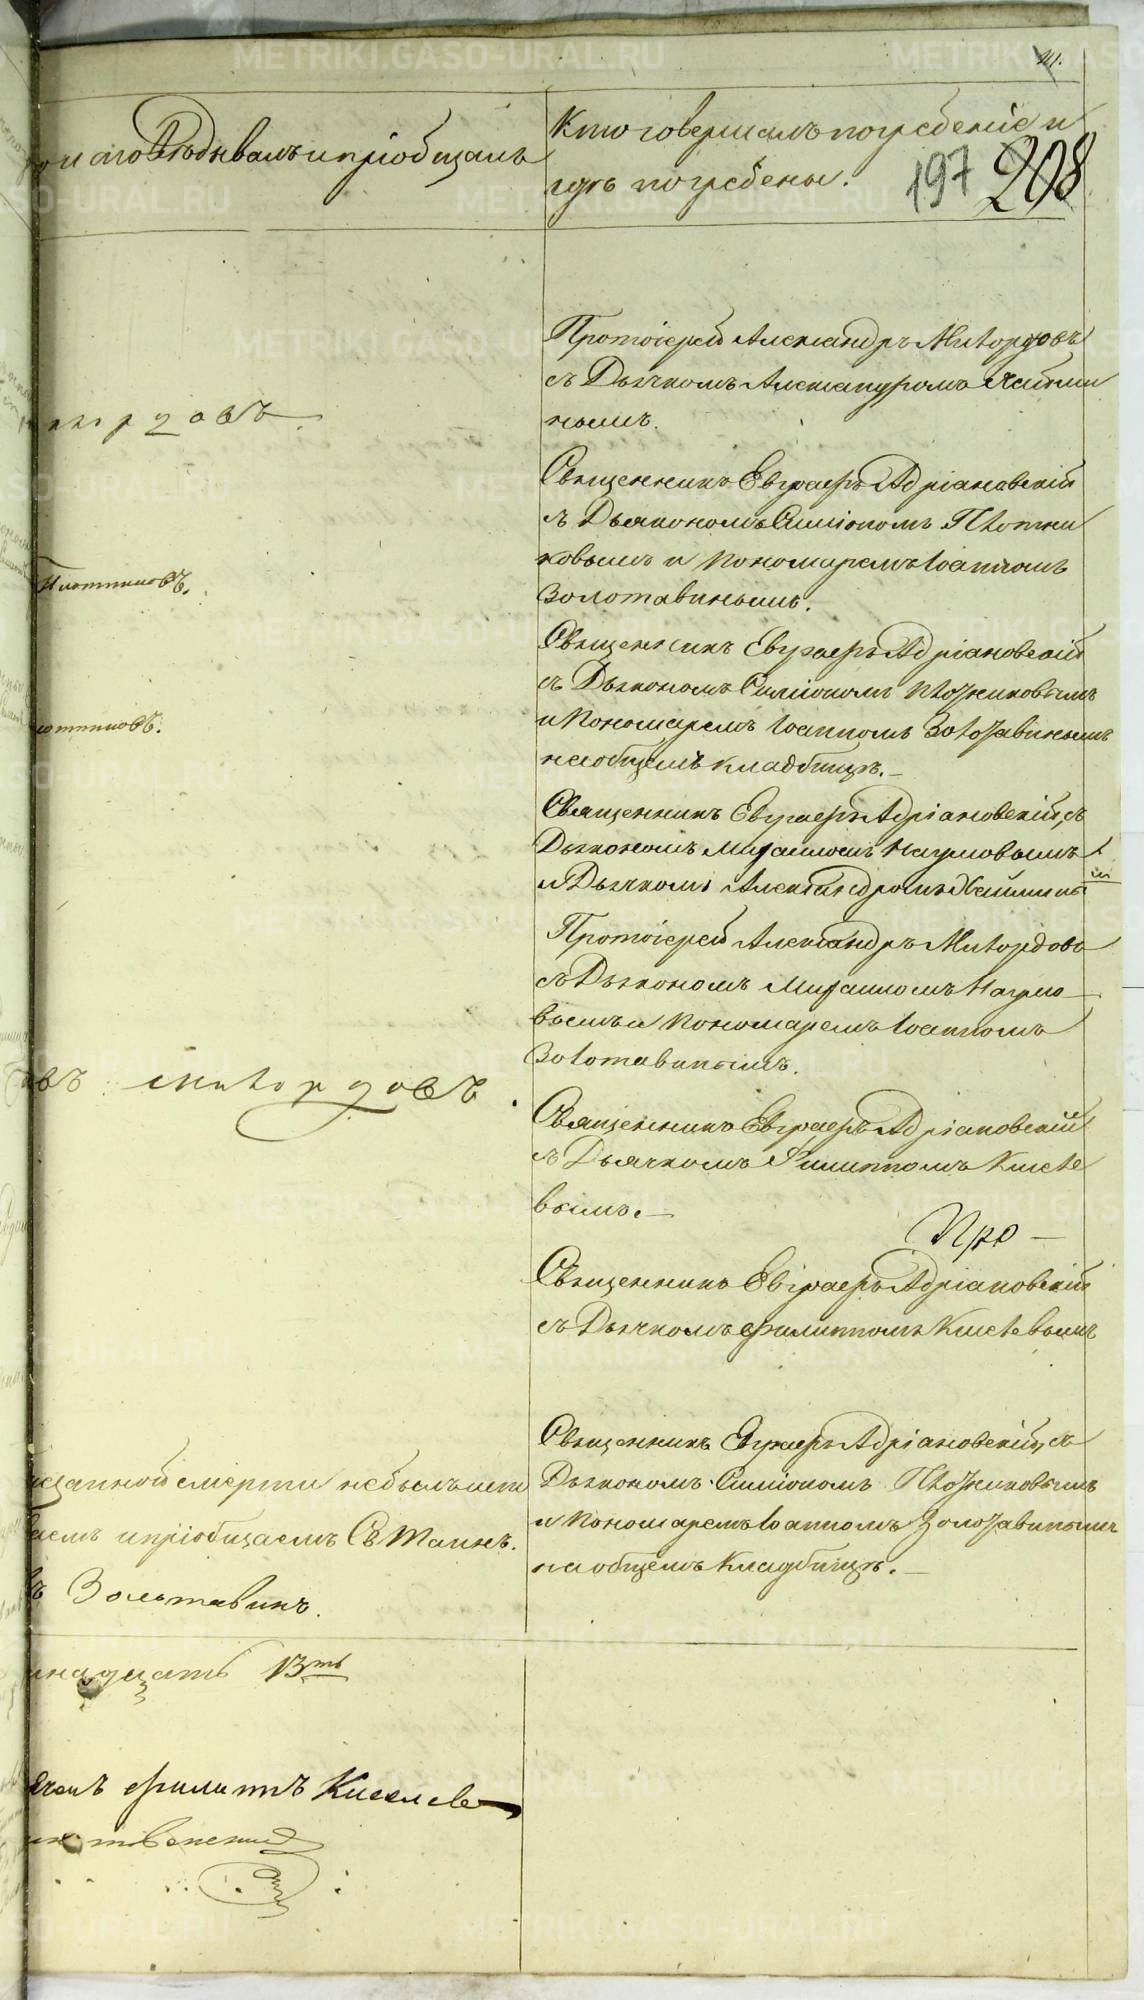 Кто исповѣдывалъ и пріобщалъ
Кто совершалъ погребеніе и
гдѣ погребены.
197 208
Протоіерей Александръ Милордовъ
съ Дьячкомъ Александромъ
нымъ.
Милордовъ.
Священникъ Евграфъ Адріановскій
съ Дьякономъ Симіономъ Плотни
ковымъ и Пономаремъ Іоанномъ
Золотавинымъ.
Плотниковъ.
Священникъ Евграфъ Адріановскій
съ Дьякономъ Симіономъ Плотниковымъ
и Пономаремъ Іоанномъ Золотавинымъ
на общемъ кладбищѣ.
лотниковъ.
Священникъ Евграфъ Адріановскій, съ
Дьякономъ Михаиломъ Наумовымъ
и Дьячкомъ Александромъ
Протоіерей Александръ Милордовъ
съ Дьякономъ Михаиломъ Наумо
вымъ и Пономаремъ Іоанномъ
Золотавинымъ.
овъ Милордовъ.
Священникъ Евграфъ Адріановскій
съ Дьячкомъ Филиппомъ Кисѣле
вымъ.
Про
Священникъ Евграфъ Адріановскій
съ Дьячкомъ Филиппомъ Кисѣлевымъ
Священникъ Евграфъ Адріановскій, съ
Дьякономъ Симіономъ Плотниковымъ
и Пономаремъ Іоанномъ Золотавинымъ
на общемъ Кладбищѣ.
незапной смерти не былъ испо
ваемъ и пріобщаемъ Св. Таинъ.
въ Золотавинъ.
инадцать 13ть
ячекъ Филиппъ Киселев